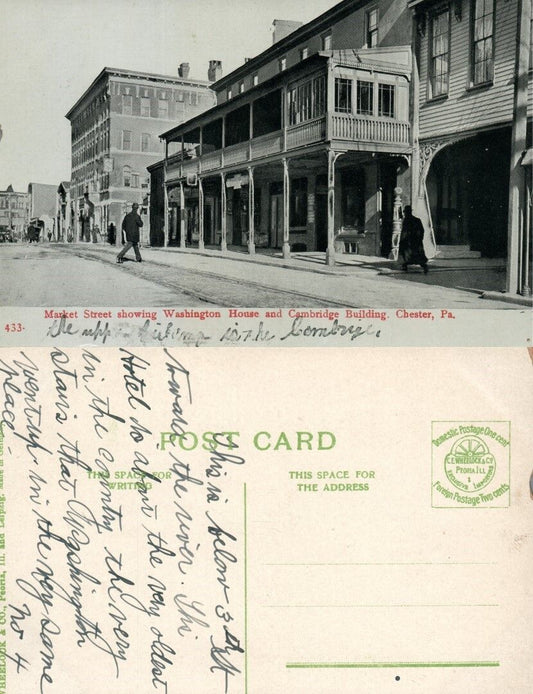 Market Street showing Washington House and Cambridge Building. Chester, Pa.
433.
the upper building is the Cambrige.
POST CARD
THIS SPACE FOR
WRITING
THIS SPACE FOR
THE ADDRESS
Domestic Postage One cent
C.E. WHEELOCK & CO.
PEORIA ILL
EXCLUSIVE IMPORTERS
Foreign Postage Two cents
WHEELOCK & CO., Peoria, Ill. and Leipzig. Made in
This is below 3rd st
toward the river. This
Hotel is about the very oldest
in the country the very
stairs that Washington
went up in the very same
place.
No 4